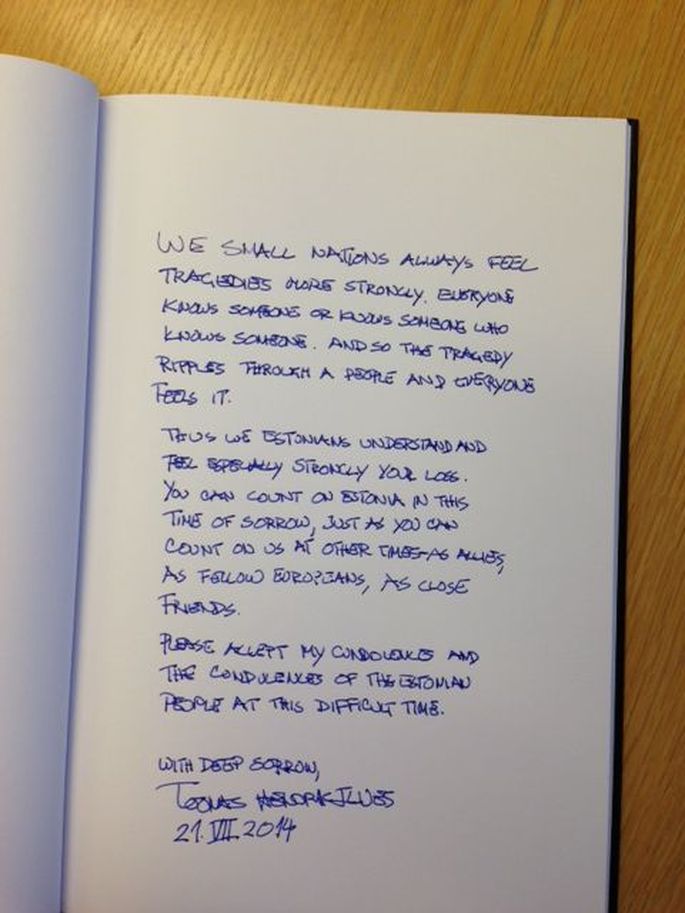 WE SMALL NATIONS ALWAYS FEEL
TRAGEDIES MORE STRONGLY. EVERYONE
KNOWS SOMEONE OR KNOWS SOMEONE WHO
KNOWS SOMEONE. AND SO THE TRAGEDY
RIPPLES THROUGH A PEOPLE AND EVERYONE
FEELS IT.
THUS WE ESTONIANS UNDERSTAND AND
FEEL ESPECIALLY STRONGLY YOUR LOSS.
YOU CAN COUNT ON ESTONIA IN THIS
TIME OF SORROW, JUST AS YOU CAN
COUNT ON US AT OTHER TIMES-AS ALLIES,
AS FELLOW EUROPEANS, AS CLOSE
FRIENDS.
PLEASE ACCEPT MY CONDOLENCES AND
THE CONDOLENCES OF THE ESTONIAN
PEOPLE AT THIS DIFFICULT TIME.
WITH DEEP SORROW,
TOOMAS HENDRIK ILVES
21. VII 2014